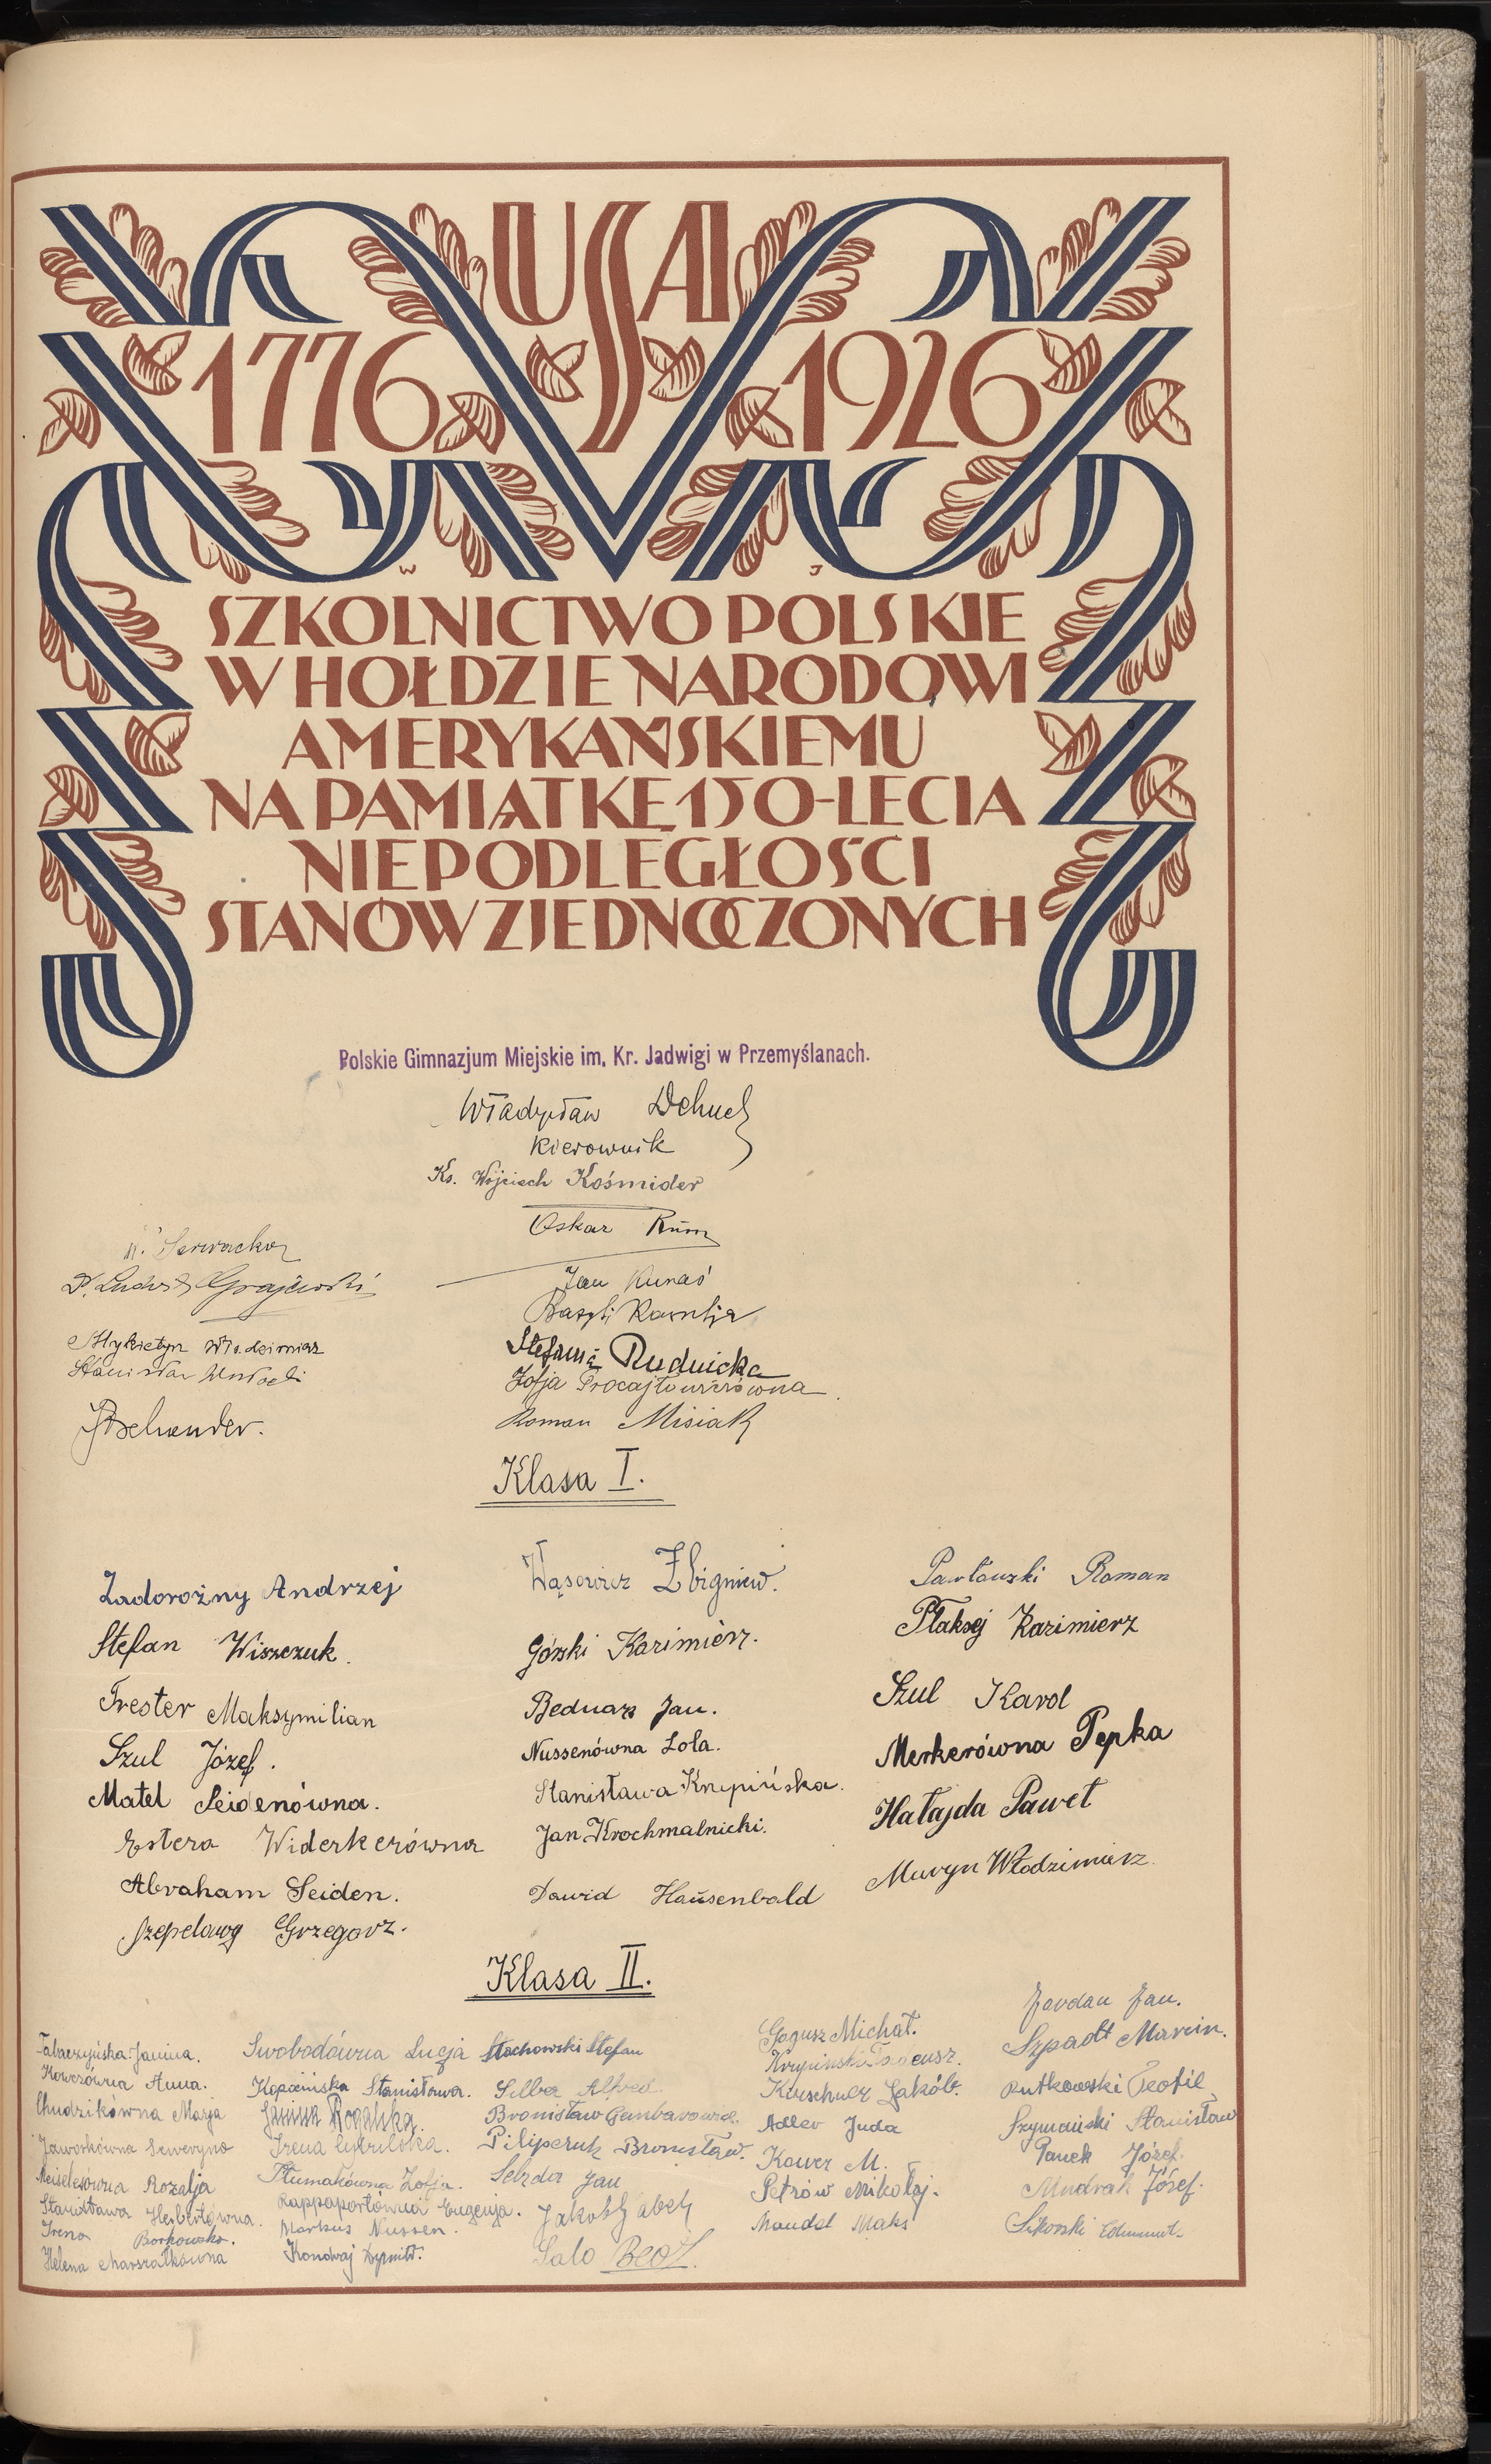 USA
1776 1926
W J
SZKOLNICTWO POLSKIE
W HOŁDZIE NARODOWI
AMERYKAŃSKIEMU
NA PAMIĄTKĘ 150-LECIA
NIEPODLEGŁOŚCI
STANÓW ZJEDNOCZONYCH
Polskie Gimnazjum Miejskie im. Kr. Jadwigi w Przemyślanach.
Władysław
Kierownik
Ks. Wojciech Kośmider
Oskar
Jan Kunaś
Bazyli
Stefania Rudnicka
Zofja
Roman Misiak
Grajewski
Stanisław
Klasa I.
Zadorożny Andrzej
Stefan Wiszczuk.
Trester Maksymilian
Szul Józef.
Matel Seidenówna.
Estera Widerkerówna
Abraham Seiden.
Szepelawy Grzegorz.
Wąsowicz Zbigniew.
Górski Kazimierz.
Bednarz Jan.
Nussenówna Lola.
Stanisława Krupińska.
Jan Krochmalnicki.
Dawid Hausenbald
Pawłowski Roman
Płaksej Kazimierz
Szul Karol
Merkerówna Pepka
Hałajda Paweł
Muryn Włodzimierz.
Klasa II.
Tabaczyńska Janina.
Kowczówna Anna.
Chudzikówna Marja
Jaworkówna Seweryna
Meiselesówna Rozalja
Stanisława Herbertówna.
Irena Borkowska.
Helena Marszałkówna
Swobodówna Łucja
Kopcińska Stanisława.
Janina Rogalska.
Irena
Tłumakówna Zofja.
Rappaportówna Eugenja.
Markus Nussen.
Kondraj
Stachowski Stefan
Silber Alfred
Bronisław
Pilipczuk Bronisław.
Sebzda Jan
Jakób
Salo
Gogusz Michał.
Krupiński Tadeusz.
Kirschner Jakób.
Adler Juda
Kower M.
Petrów Mikołaj.
Mandel Maks
Jordan Jan.
Szpadt Marcin.
Rutkowski Teofil
Szymański Stanisław
Panek Józef.
Mudrak Józef.
Sikorski Edmund.